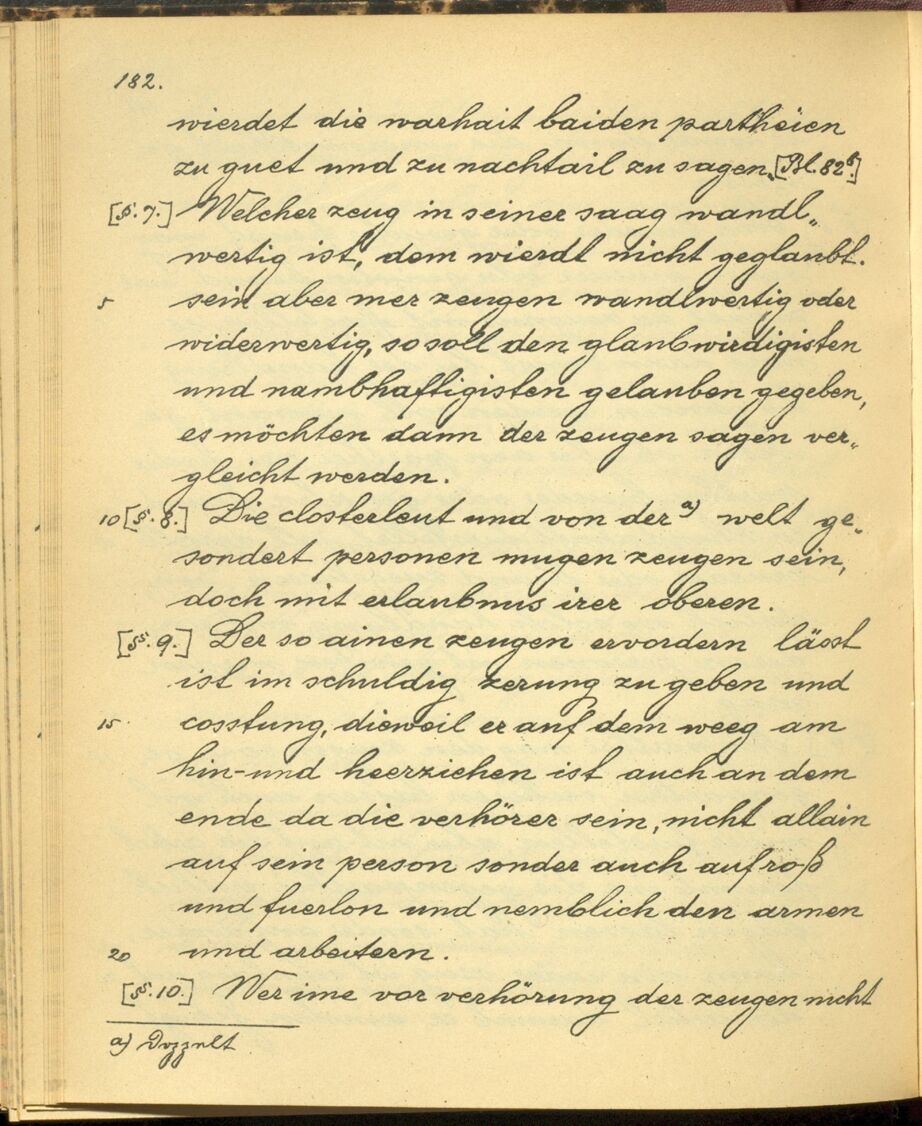 182.
wierdet die warhait baiden partheien
zu guet und zu nachtail zu sagen. [Bl. 82b.]
[§. 7.] Welcher zeug in seiner saag wandl„
wertig ist, dem wierdt nicht geglaubt.
5 sein aber mer zeugen wandlwertig oder
widerwertig, so soll den glaubwirdigisten
und nambhaftigisten gelauben gegeben,
es möchten dann der zeugen sagen ver„
gleicht werden.
10 [§. 8.] Die closterleut und von der a) welt ge„
sondert personen mugen zeugen sein,
doch mit erlaubnus irer oberen.
[§. 9.] Der so ainen zeugen ervordern lässt
ist im schuldig zerung zu geben und
15 cosstung, dieweil er auf dem weeg am
hin- und heerziehen ist auch an dem
ende da die verhörer sein, nicht allain
auf sein person sonder auch auf roß
und fuerlon und nemblich den armen
20 und arbeitern.
[§. 10.] Wer ime vor verhörung der zeugen nicht
a) Doppelt